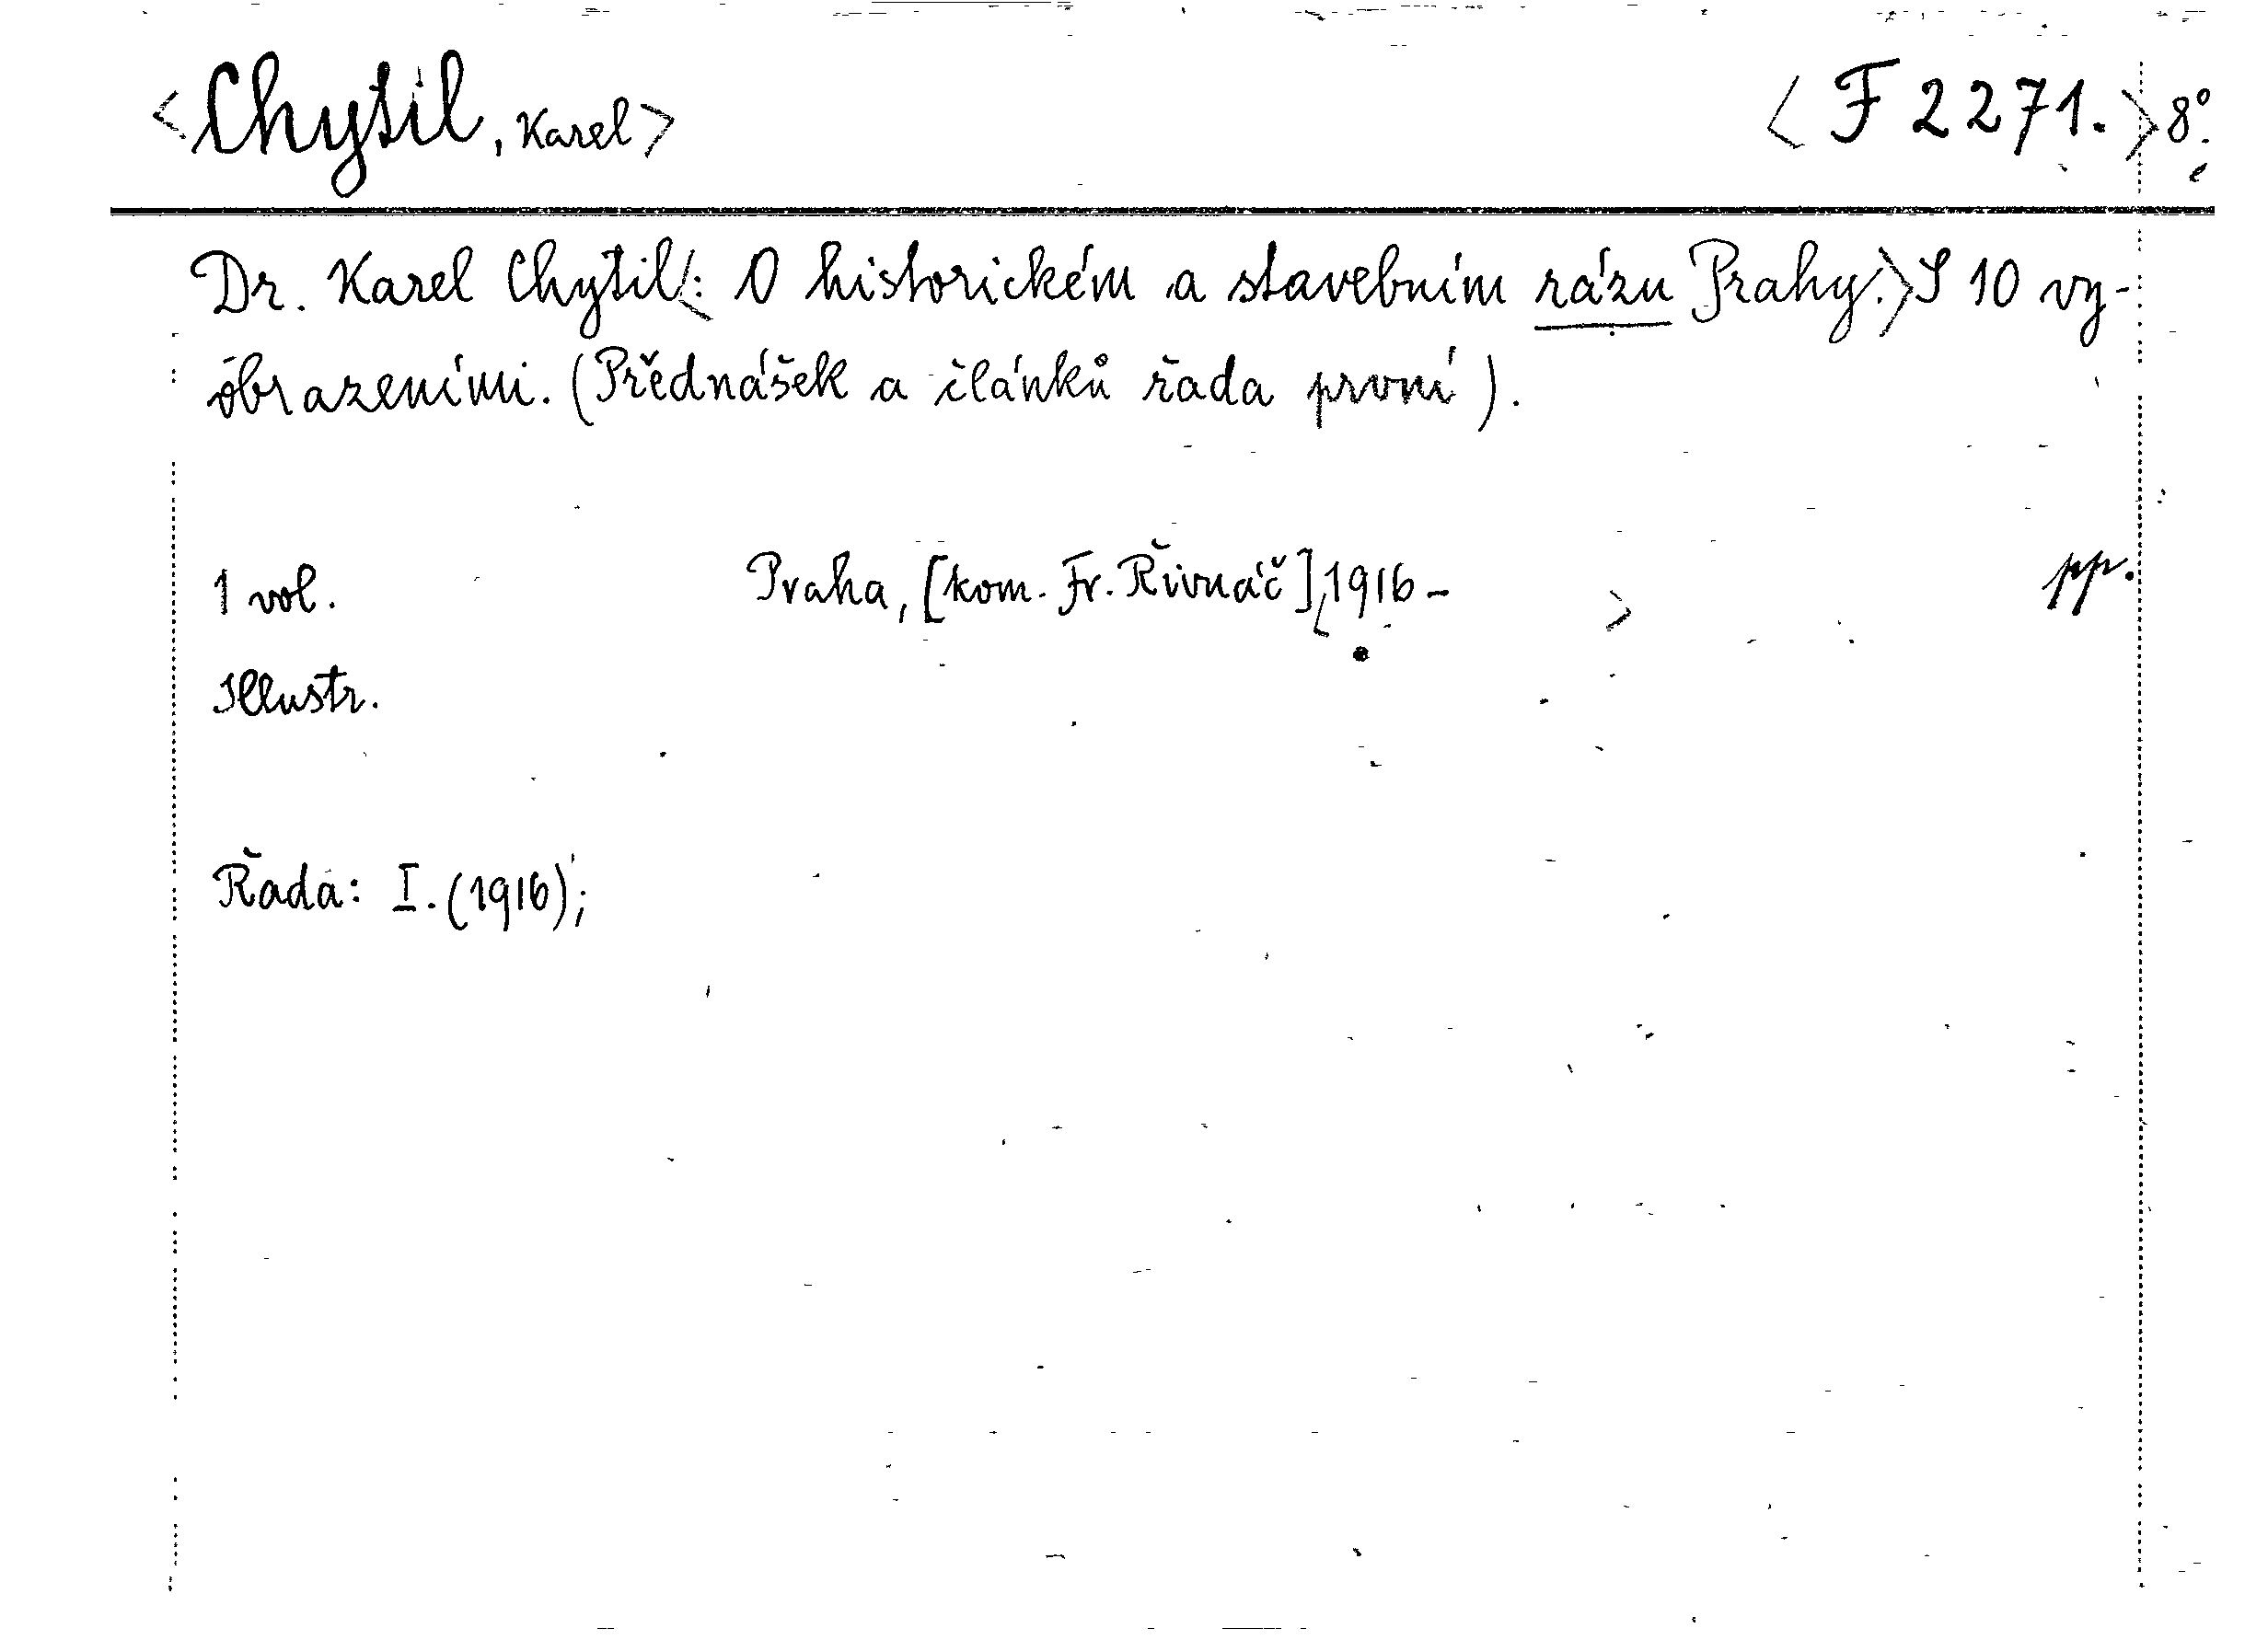 <Chytil, Karel> <F 2271.> 8°.
Dr. Karel Chytil<: O historickém a stavebním rázu Prahy.> S 10 vy-
obrazeními. (Přednášek a článků řada první).
1 vol. Praha, [kom. Fr. Řivnáč] <1916- > pp.
Illustr.
Řada: I. (1916);